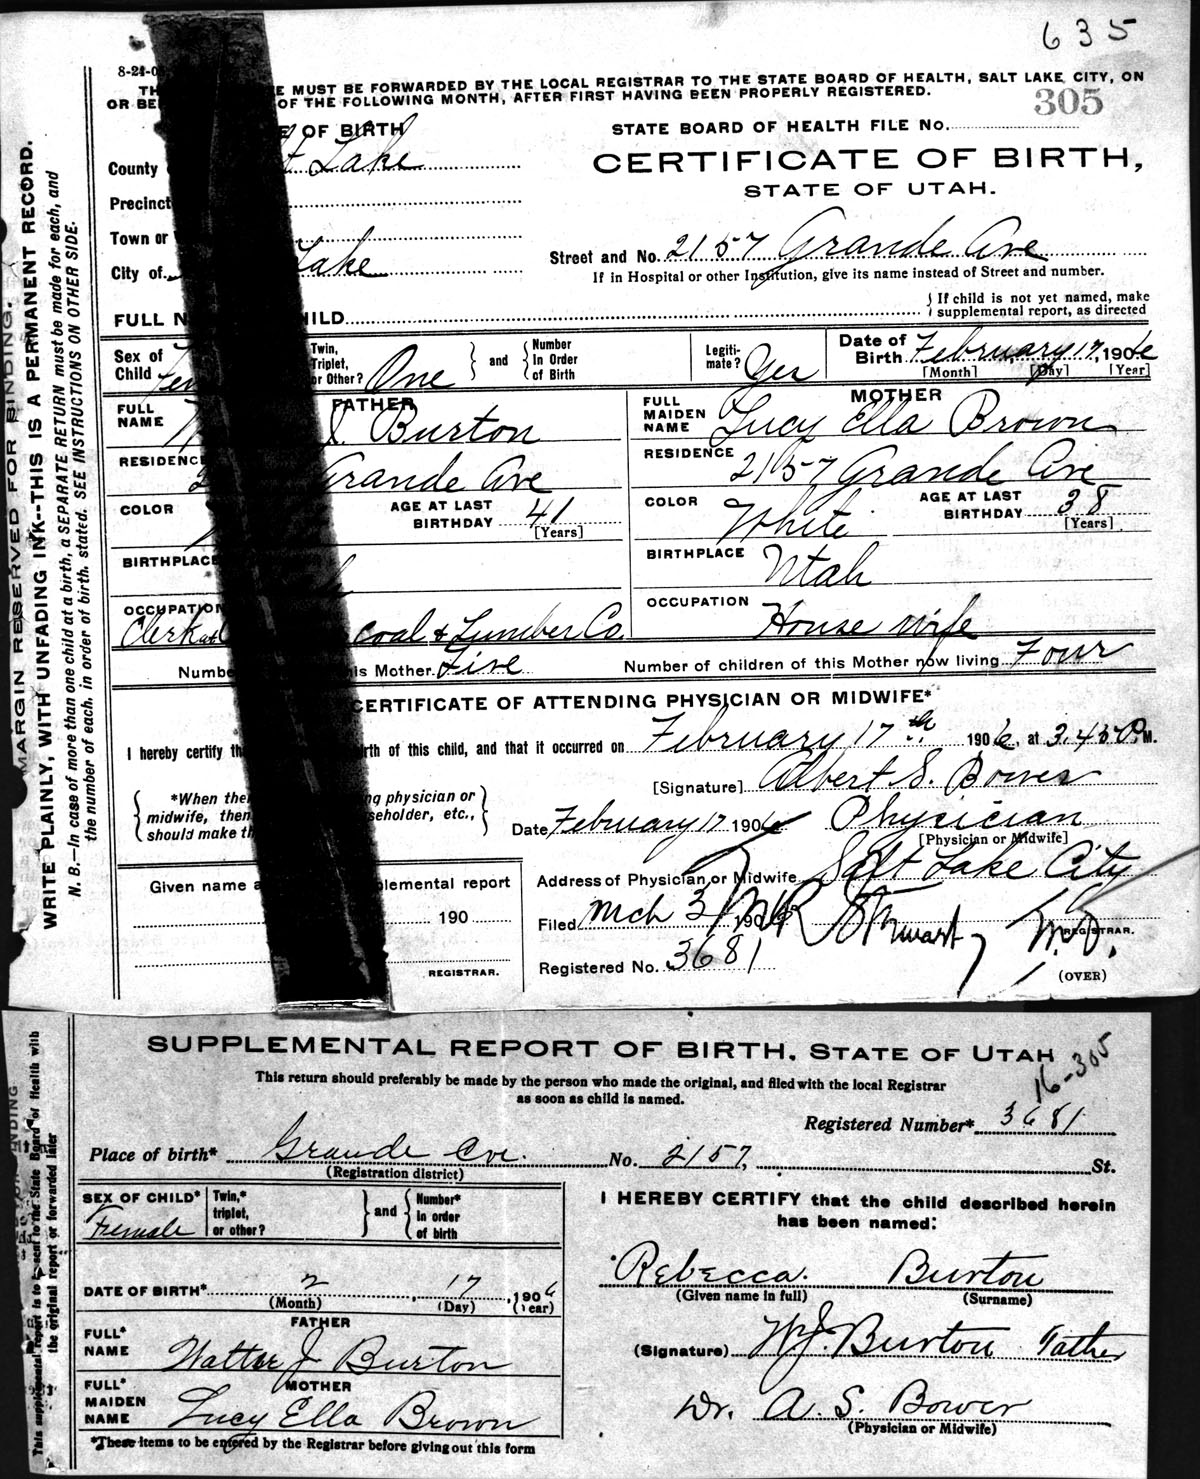 635
8-21-0
TH E MUST BE FORWARDED BY THE LOCAL REGISTRAR TO THE STATE BOARD OF HEALTH, SALT LAKE CITY, ON
OR BE OF THE FOLLOWING MONTH, AFTER FIRST HAVING BEEN PROPERLY REGISTERED.
305
E OF BIRTH
STATE BOARD OF HEALTH FILE No.
County t Lake
CERTIFICATE OF BIRTH,
STATE OF UTAH.
Precinct
Town or
City of Lake
Street and No. 2157 Grande Ave
If in Hospital or other Institution, give its name instead of Street and number.
FULL N CHILD
If child is not yet named, make
supplemental report, as directed
Sex of Child Fem
Twin, Triplet, or Other? One
and
Number In Order of Birth
Legiti-mate? Yes
Date of Birth February 17, 1906
[Month] [Day] [Year]
FATHER
MOTHER
FULL NAME J. Burton
FULL MAIDEN NAME Lucy Ella Brown
RESIDENCE 2 Grande Ave
RESIDENCE 2157 Grande Ave
COLOR
AGE AT LAST BIRTHDAY 41
[Years]
COLOR White
AGE AT LAST BIRTHDAY 38
[Years]
BIRTHPLACE h
BIRTHPLACE Utah
OCCUPATION Clerk at coal & Lumber Co
OCCUPATION House wife
Numbe his Mother Five
Number of children of this Mother now living Four
CERTIFICATE OF ATTENDING PHYSICIAN OR MIDWIFE*
I hereby certify th irth of this child, and that it occurred on February 17th 1906, at 3.45 P.M.
[Signature] Albert S. Bower
*When ther ng physician or
midwife, then seholder, etc.,
should make th
Date February 17 1906
Physician
[Physician or Midwife]
Given name a plemental report
Address of Physician or Midwife Salt Lake City
190
Filed Mch 3 1906
M.D.
REGISTRAR.
REGISTRAR.
Registered No. 3681
(OVER)
MARGIN RESERVED FOR BINDING.
WRITE PLAINLY, WITH UNFADING INK--THIS IS A PERMANENT RECORD.
N. B.—In case of more than one child at a birth, a SEPARATE RETURN must be made for each, and
the number of each, in order of birth, stated. SEE INSTRUCTIONS ON OTHER SIDE.
SUPPLEMENTAL REPORT OF BIRTH, STATE OF UTAH
16-305
This return should preferably be made by the person who made the original, and filed with the local Registrar
as soon as child is named.
Registered Number* 3681
Place of birth* Grande Ave. No. 2157, St.
(Registration district)
SEX OF CHILD* Female
Twin,* triplet, or other?
and
Number* in order of birth
I HEREBY CERTIFY that the child described herein
has been named:
Rebecca Burton
(Given name in full) (Surname)
DATE OF BIRTH* 2 17, 1906
(Month) (Day) (Year)
FATHER
FULL* NAME Walter J Burton
(Signature) W.J. Burton Father
MOTHER
FULL* MAIDEN NAME Lucy Ella Brown
Dr. A. S. Bower
(Physician or Midwife)
*These items to be entered by the Registrar before giving out this form
This supplemental report is to be sent to the State Board of Health with
the original report or forwarded later